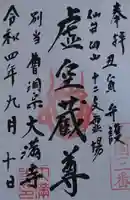 奉拝 丑寅 守護
仙台 十支霊場
虚空蔵尊
別当曹洞宗大満寺
令和四年九月十日